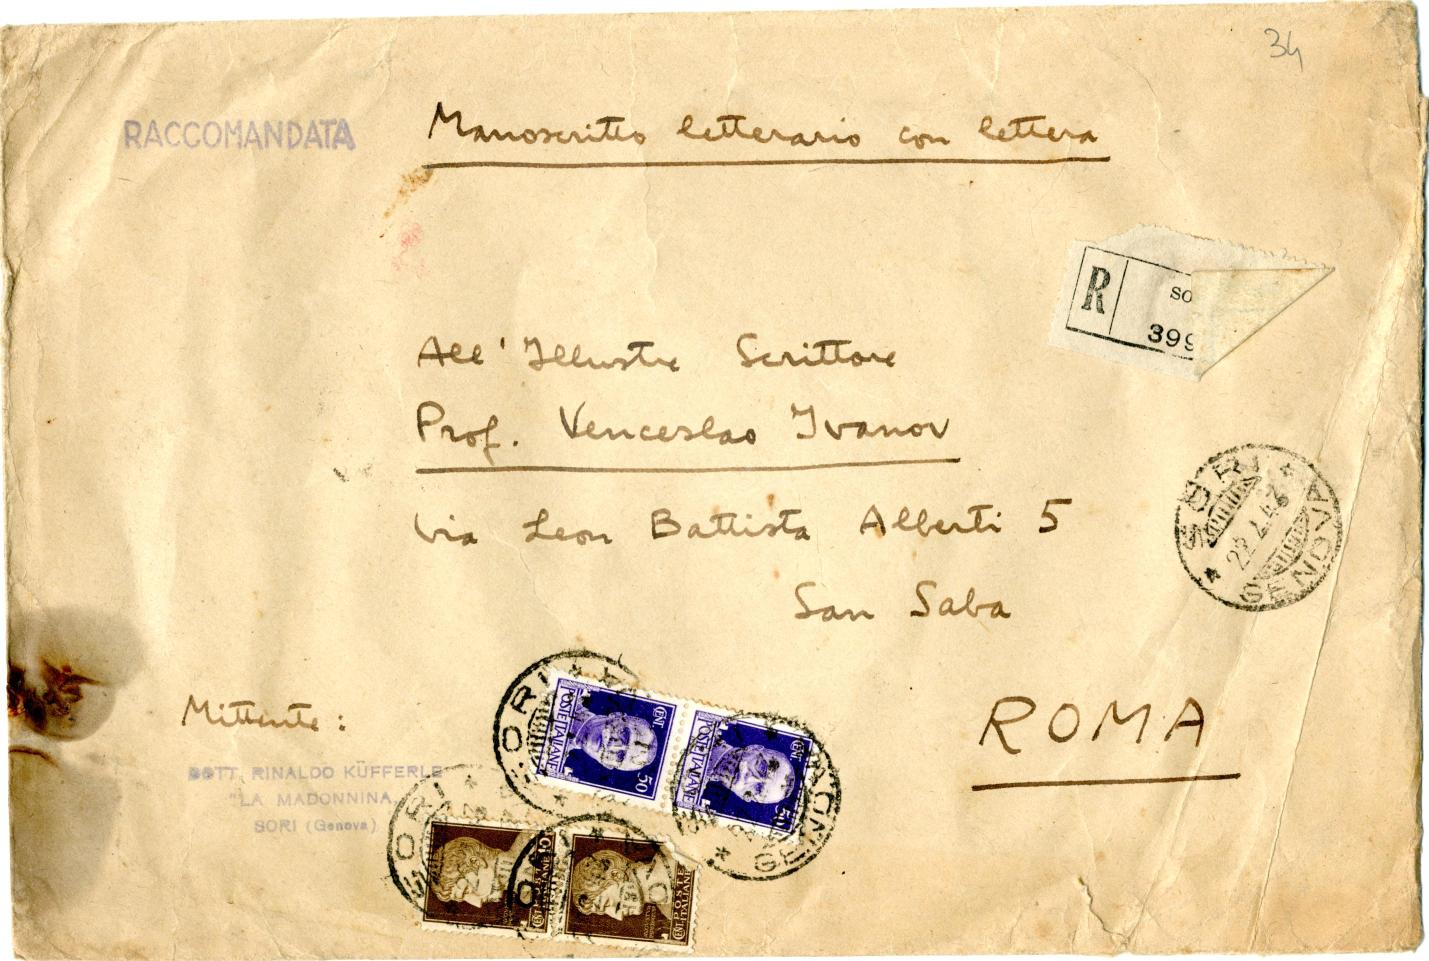 34
RACCOMANDATA
Manoscritto letterario con lettera
R
SO
399
All'Illustre Scrittore
Prof. Venceslao Ivanov
via Leon Battista Alberti 5
San Saba
ROMA
SORI
GENOVA
Mittente:
DOTT. RINALDO KÜFFERLE
"LA MADONNINA
SORI (Genova)
POSTE ITALIANE
CENT. 50
POSTE ITALIANE
CENT 50
SORI
GENOVA
SORI
POSTE
ITALIANE
CENT
10